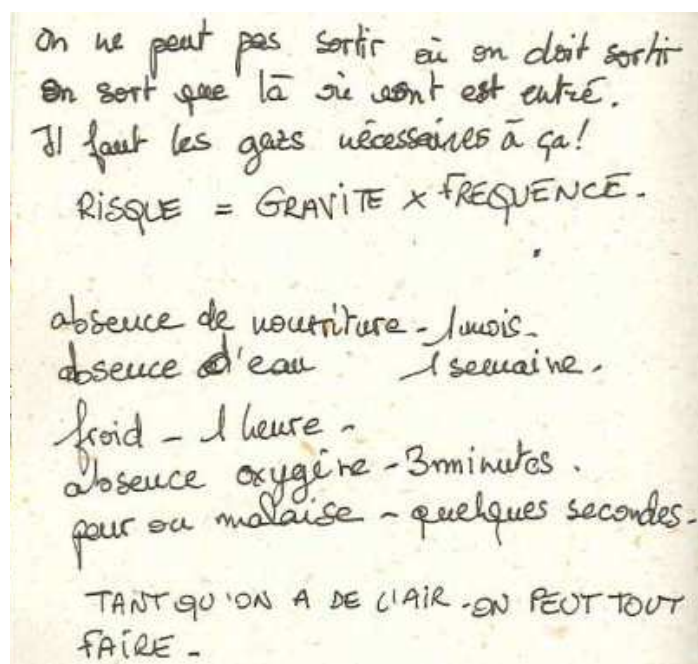 On ne peut pas sortir où on doit sortir
On sort que là où vont est entré.
Il faut les gazs nécessaires à ça!
RISQUE = GRAVITE x FREQUENCE.
absence de nourriture - 1 mois -
absence d'eau 1 semaine.
froid - 1 heure -
absence oxygène - 3 minutes.
peur ou malaise - quelques secondes -
TANT QU'ON A DE L'AIR - ON PEUT TOUT
FAIRE -